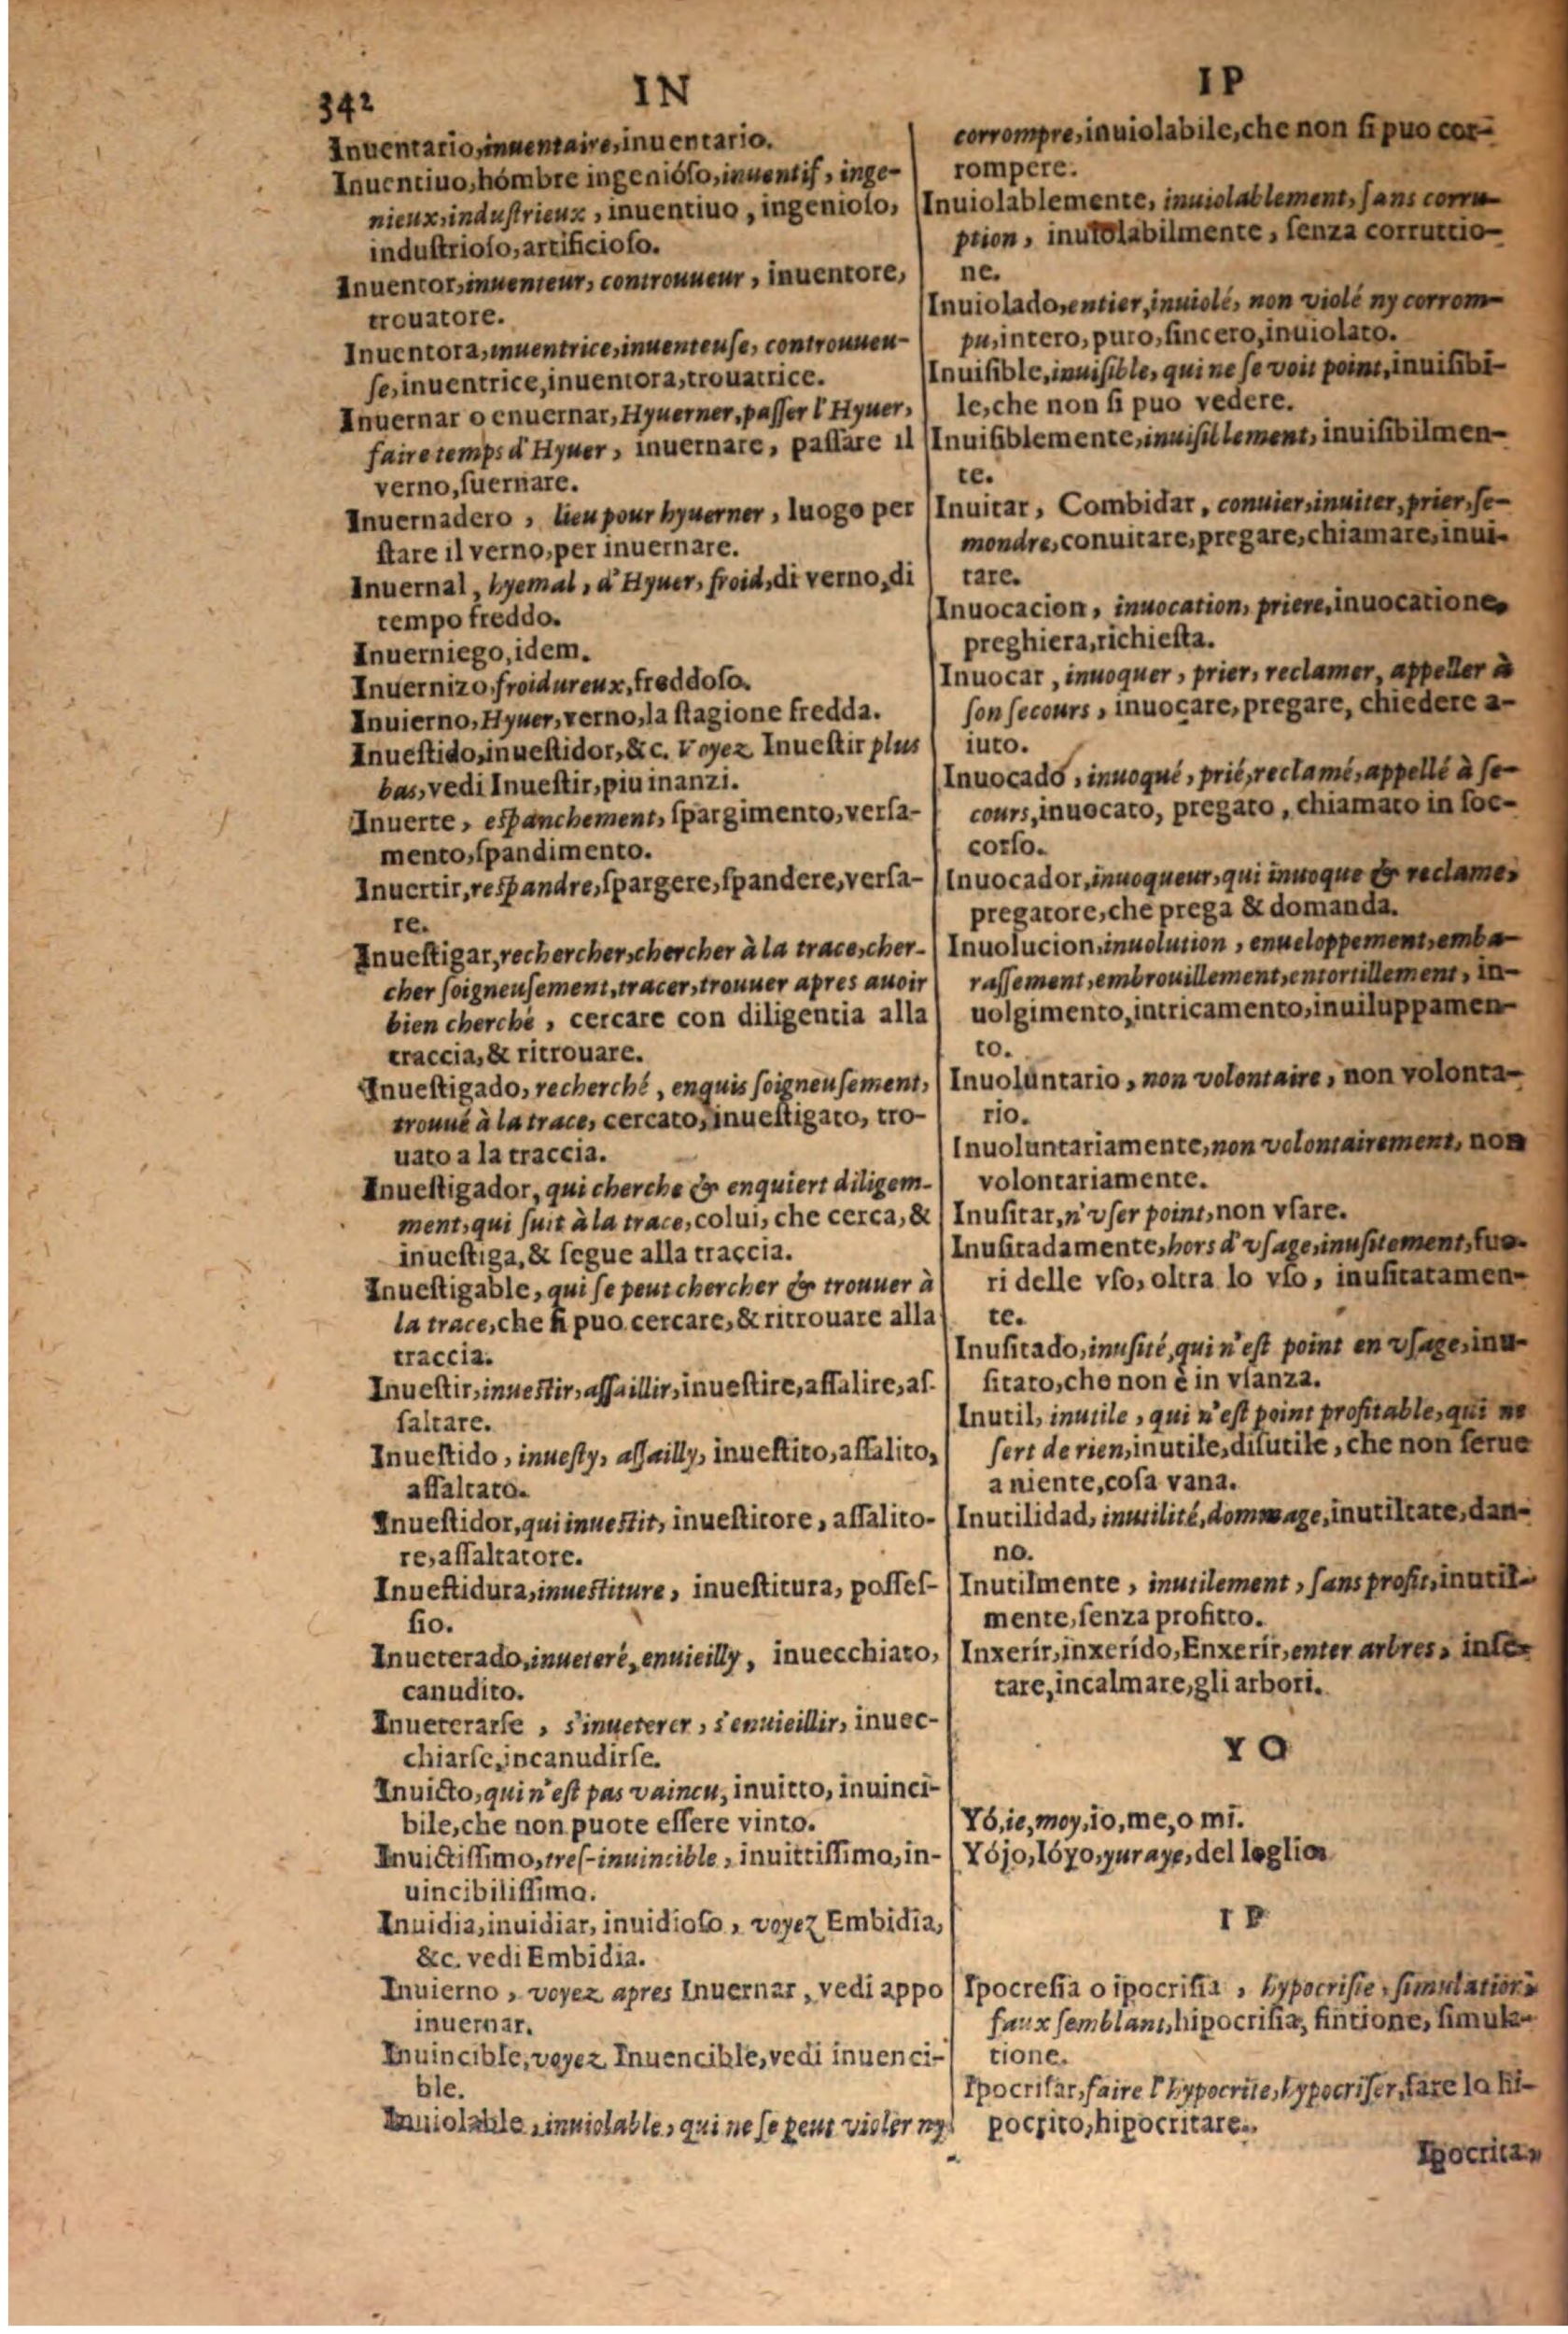 342
IN
IP
Inuentario,inuentaire,inuentario.
Inuentiuo,hómbre ingenióſo,inuentif, inge-
nieux,induſtrieux, inuentiuo, ingenioſo,
induſtrioſo,artificioſo.
Inuentor,inuenteur, controuueur, inuentore,
trouatore.
Inuentora,inuentrice,inuenteuſe, controuueu-
ſe,inuentrice,inuentora,trouatrice.
Inuernar o enuernar, Hyuerner,paſſer l'Hyuer,
faire temps d'Hyuer, inuernare, paſſare il
verno,ſuernare.
Inuernadero, lieu pour hyuerner, luogo per
ſtare il verno,per inuernare.
Inuernal, hyemal, d'Hyuer, froid,di verno,di
tempo freddo.
Inuerniego,idem.
Inuernizo,froidureux,freddoſo.
Inuierno,Hyuer,verno,la ſtagione fredda.
Inueſtido,inueſtidor,&c. Voyez Inueſtir plus
bas,vedi Inueſtir,piu inanzi.
Inuerte, eſpanchement, ſpargimento,verſa-
mento,ſpandimento.
Inuertir,reſpandre,ſpargere,ſpandere,verſa-
re.
Inueſtigar,rechercher,chercher à la trace,cher-
cher ſoigneuſement,tracer,trouuer apres auoir
bien cherché, cercare con diligentia alla
traccia,& ritrouare.
Inueſtigado, recherché, enquis ſoigneuſement,
trouué à la trace, cercato,inueſtigato, tro-
uato a la traccia.
Inueſtigador, qui cherche & enquiert diligem-
ment,qui ſuit à la trace,colui, che cerca,&
inueſtiga,& ſegue alla traccia.
Inueſtigable, qui ſe peut chercher & trouuer à
la trace,che ſi puo cercare,& ritrouare alla
traccia.
Inueſtir,inueſtir,aſſaillir,inueſtire,aſſalire,aſ-
ſaltare.
Inueſtido, inueſty, aſſailly, inueſtito,aſſalito,
aſſaltato.
Inueſtidor,qui inueſtit, inueſtitore, aſſalito-
re,aſſaltatore.
Inueſtidura,inueſtiture, inueſtitura, poſſeſ-
ſio.
Inueterado,inueteré,enuieilly, inuecchiato,
canudito.
Inueterarſe, s'inueterer, s'enuieillir, inuec-
chiarſe,incanudirſe.
Inuicto,qui n'eſt pas vaincu, inuitto, inuinci-
bile,che non puote eſſere vinto.
Inuictiſſimo,treſ-inuincible, inuittiſſimo,in-
uincibiliſſimo.
Inuidia,inuidiar, inuidioſo, voyez Embidia,
&c. vedi Embidia.
Inuierno, voyez apres Inuernar, vedi appo
inuernar.
Inuincible,voyez Inuencible,vedi inuenci-
ble.
Inuiolable, inuiolable, qui ne ſe peut violer ny
corrompre,inuiolabile,che non ſi puo cor-
rompere.
Inuiolablemente, inuiolablement, ſans corru-
ption, inuiolabilmente, ſenza corruttio-
ne.
Inuiolado,entier,inuiolé, non violé ny corrom-
pu,intero,puro,ſincero,inuiolato.
Inuiſible,inuiſible, qui ne ſe voit point,inuiſibi-
le,che non ſi puo vedere.
Inuiſiblemente,inuiſillement, inuiſibilmen-
te.
Inuitar, Combidar, conuier,inuiter,prier,ſe-
mondre,conuitare,pregare,chiamare,inui-
tare.
Inuocacion, inuocation, priere,inuocatione,
preghiera,richieſta.
Inuocar, inuoquer, prier, reclamer, appeller à
ſon ſecours, inuocare,pregare, chiedere a-
iuto.
Inuocado, inuoqué, prié,reclamé,appellé à ſe-
cours,inuocato, pregato, chiamato in ſoc-
corſo.
Inuocador,inuoqueur,qui inuoque & reclame,
pregatore,che prega & domanda.
Inuolucion,inuolution, enueloppement,emba-
raſſement,embrouillement,entortillement, in-
uolgimento,intricamento,inuiluppamen-
to.
Inuoluntario, non volontaire, non volonta-
rio.
Inuoluntariamente,non volontairement, non
volontariamente.
Inuſitar,n'vſer point,non vſare.
Inuſitadamente,hors d'vſage,inuſitement,fuo-
ri delle vſo, oltra lo vſo, inuſitatamen-
te.
Inuſitado,inuſité,qui n'eſt point en vſage,inu-
ſitato,che non è in vſanza.
Inutil, inutile, qui n'eſt point profitable,qui ne
ſert de rien,inutile,diſutile, che non ſerue
a niente,coſa vana.
Inutilidad, inutilité,dommage,inutiltate,dan-
no.
Inutilmente, inutilement, ſans profit,inutil-
mente,ſenza profitto.
Inxerír,inxerído,Enxerír,enter arbres, inſe-
tare,incalmare,gli arbori.
YO
Yó,ie,moy,io,me,o mi.
Yójo,Ióyo,yuraye,del loglio.
IP
Ipocreſia o ipocriſia, hypocriſie, ſimulation,
faux ſemblant,hipocriſia, fintione, ſimula-
tione.
Ipocriſar,faire l'hypocrite,hypocriſer,fare lo hi-
pocrito,hipocritare.
Ipocrita,